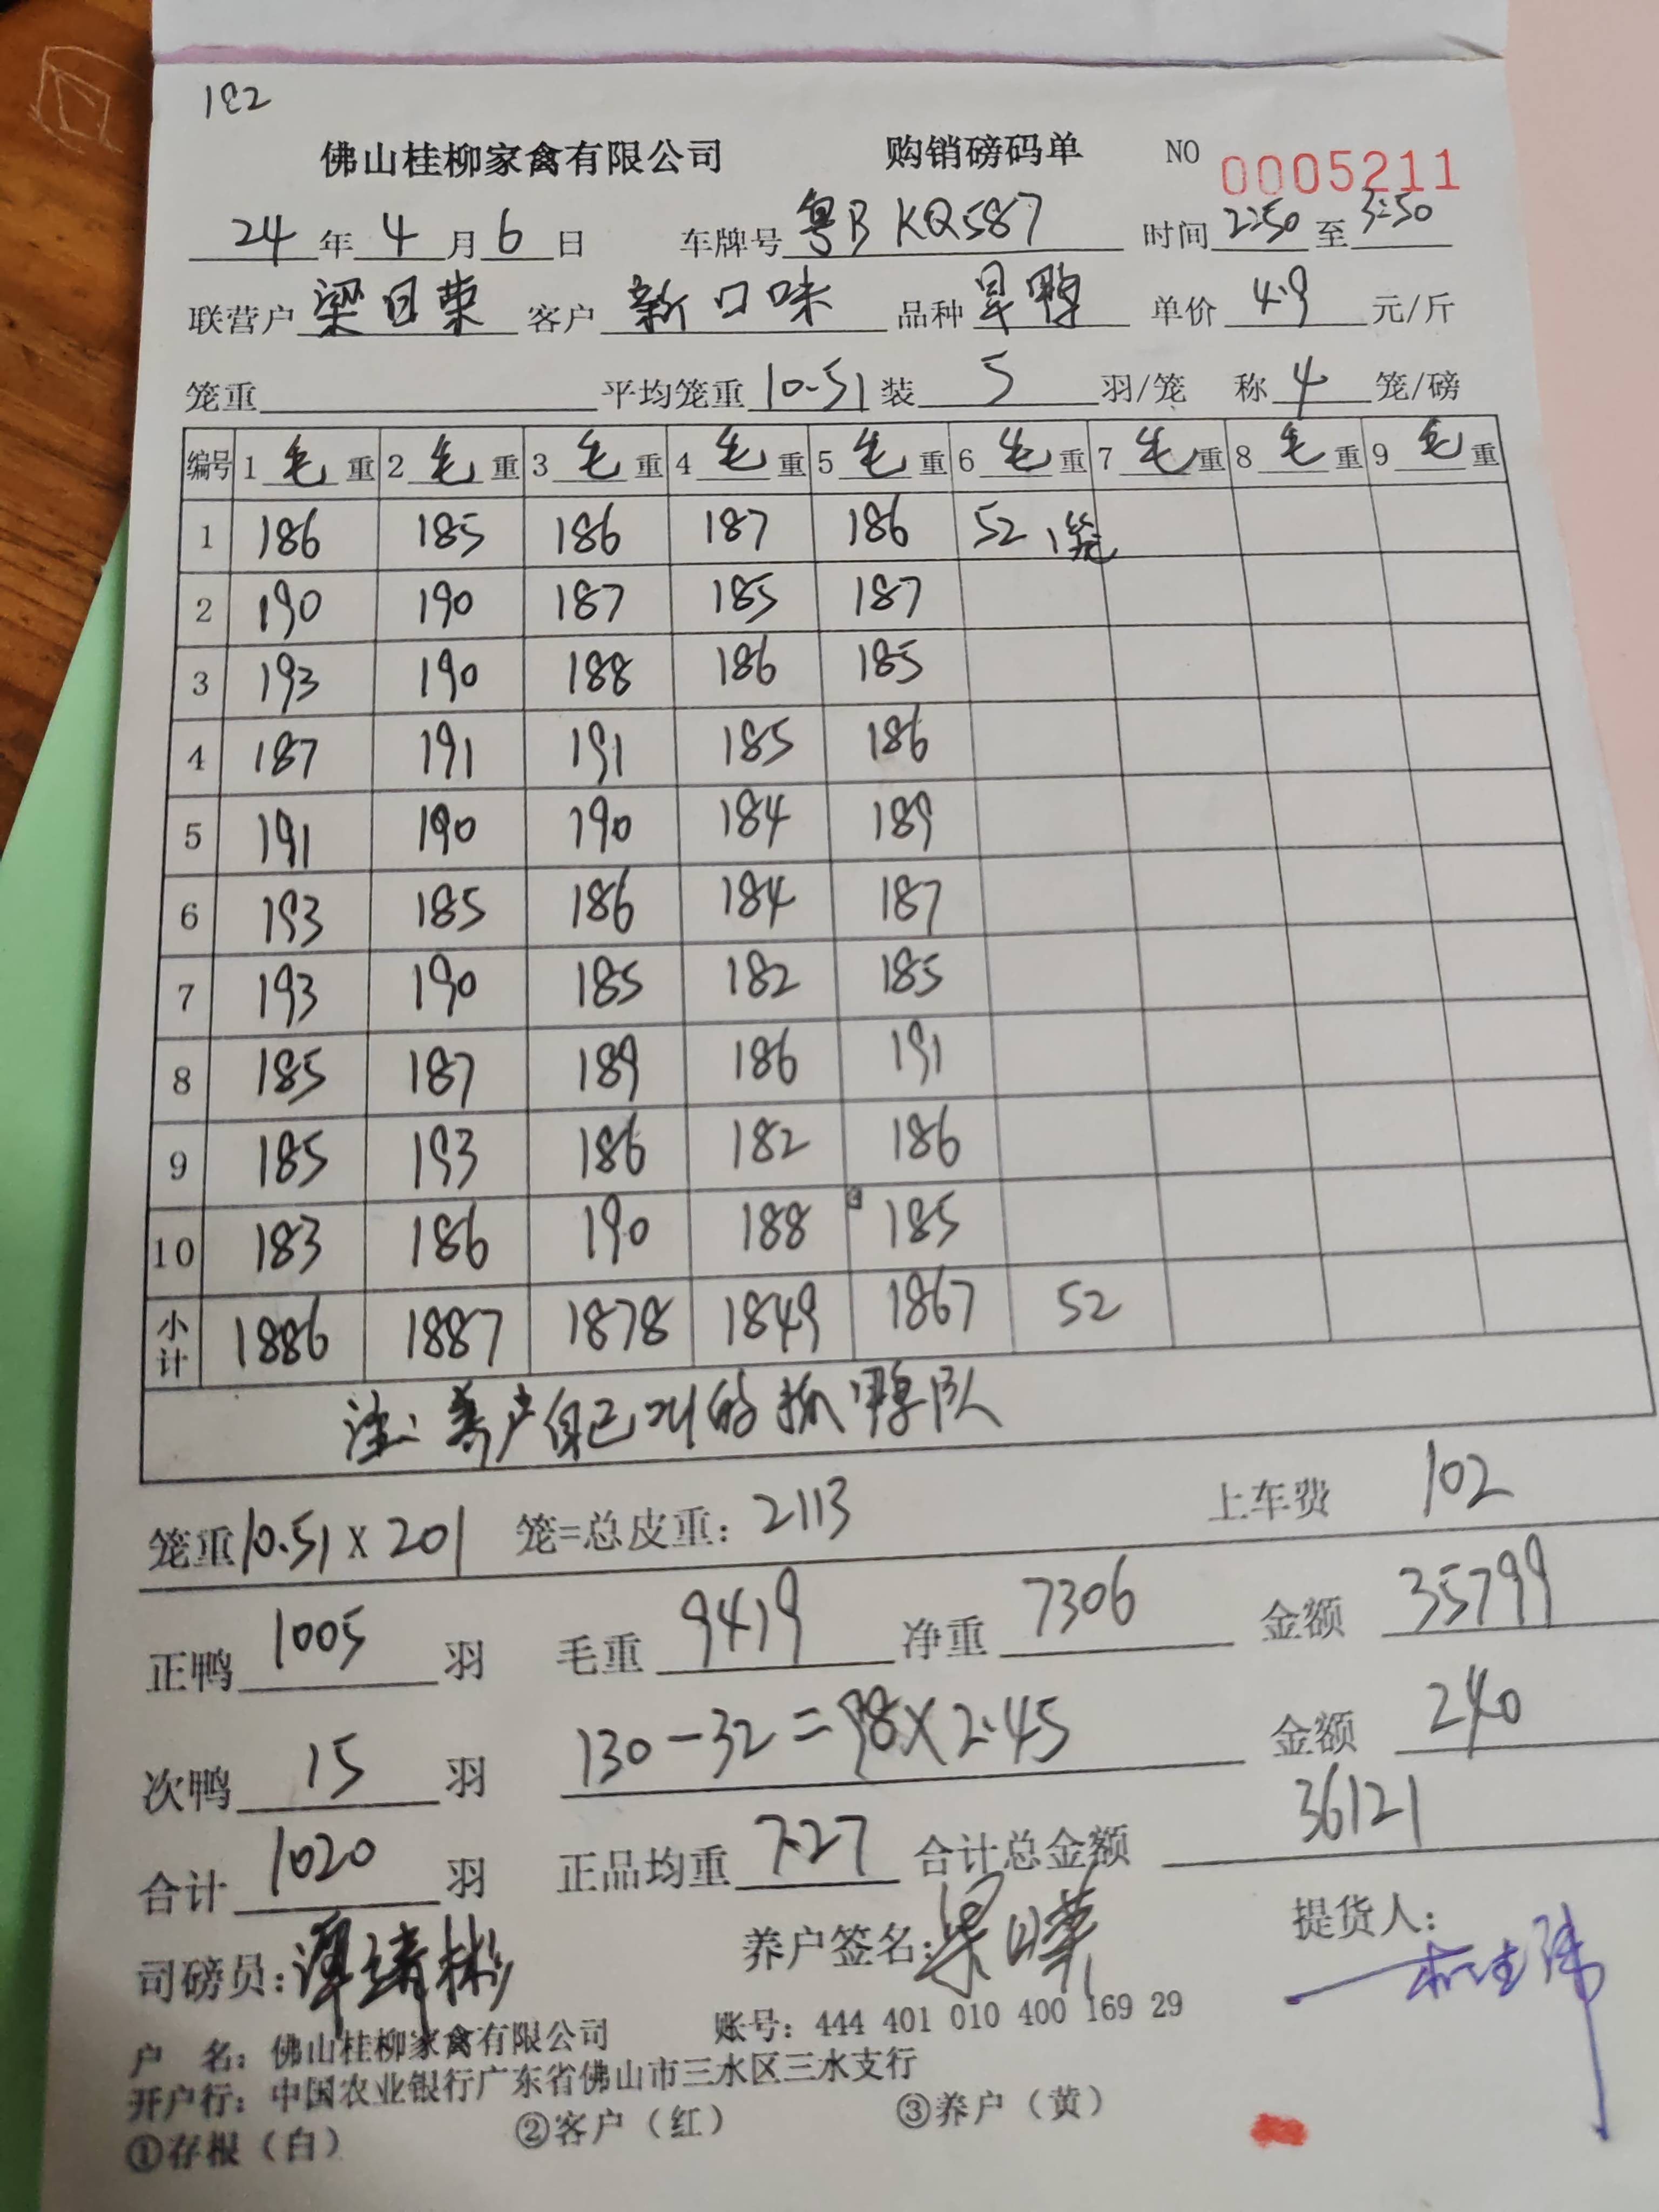 1E2
佛山桂柳家禽有限公司 购销磅码单 NO 0005211
24年4月6日 车牌号 粤B KQ587 时间 2:50 至 3:50
联营户 梁日荣 客户 新口味 品种 旱鸭 单价 4.9 元/斤
笼重 平均笼重 10.51 装 5 羽/笼 称 4 笼/磅
编号 1 毛 重 2 毛 重 3 毛 重 4 毛 重 5 毛 重 6 毛 重 7 毛 重 8 毛 重 9 毛 重
1 186 185 186 187 186 52 1笼
2 190 190 187 185 187
3 193 190 188 186 185
4 187 191 191 185 186
5 191 190 190 184 189
6 193 185 186 184 187
7 193 190 185 182 185
8 185 187 189 186 191
9 185 193 186 182 186
10 183 186 190 188 185
小计 1886 1887 1878 1849 1867 52
注: 养户自己叫的抓鸭队
笼重 10.51 x 201 笼=总皮重: 2113 上车费 102
正鸭 1005 羽 毛重 9419 净重 7306 金额 35799
次鸭 15 羽 130-32=98x2.45 金额 240
合计 1020 羽 正品均重 7.27 合计总金额 36121
司磅员: 养户签名: 提货人:
户 名: 佛山桂柳家禽有限公司 账号: 444 401 010 400 169 29
开户行: 中国农业银行广东省佛山市三水区三水支行
①存根（白） ②客户（红） ③养户（黄）